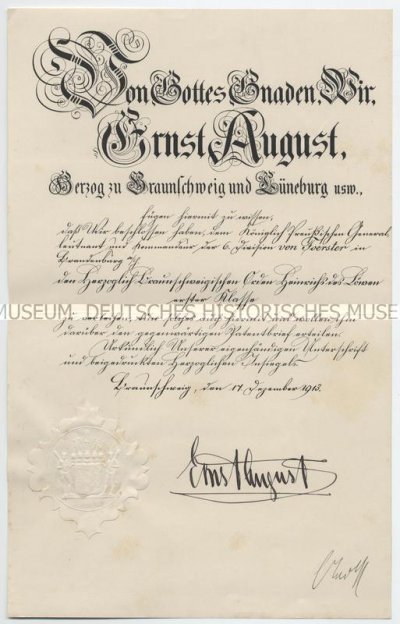 Von Gottes Gnaden, Wir,
Ernst August,
Herzog zu Braunschweig und Lüneburg usw.,
fügen hiermit zu wissen,
daß Wir beschlossen haben, dem Königlich Preußischen General-
leutnant und Kommandeur der 6. Division von Foerster in
Brandenburg a/H
den Herzoglich Braunschweigischen Orden Heinrichs des Löwen
erster Klasse
MUSEUM. DEUTSCHES HISTORISCHES MUSE
zu verleihen, und
darüber den gegenwärtigen Patentbrief erteilen.
Urkundlich Unserer eigenhändigen Unterschrift
und beigedruckten Herzoglichen Insiegels.
Braunschweig, den 17. Dezember 1913.
Ernst August